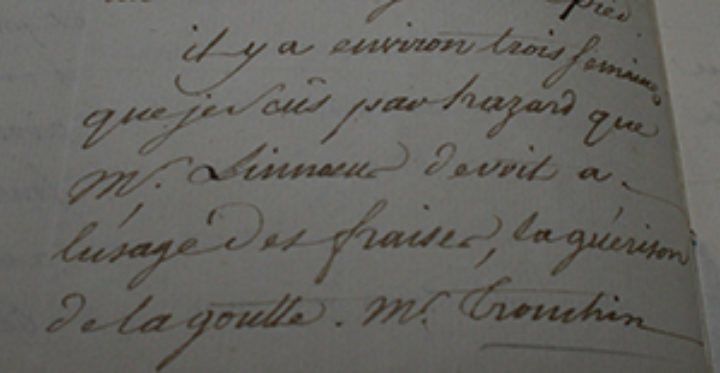 pred
il y a environ trois semaines
que je scûs par hazard que
Mr. Linnaeus devoit a
l'usage des fraises, la guérison
de la goutte. Mr. Tronchin